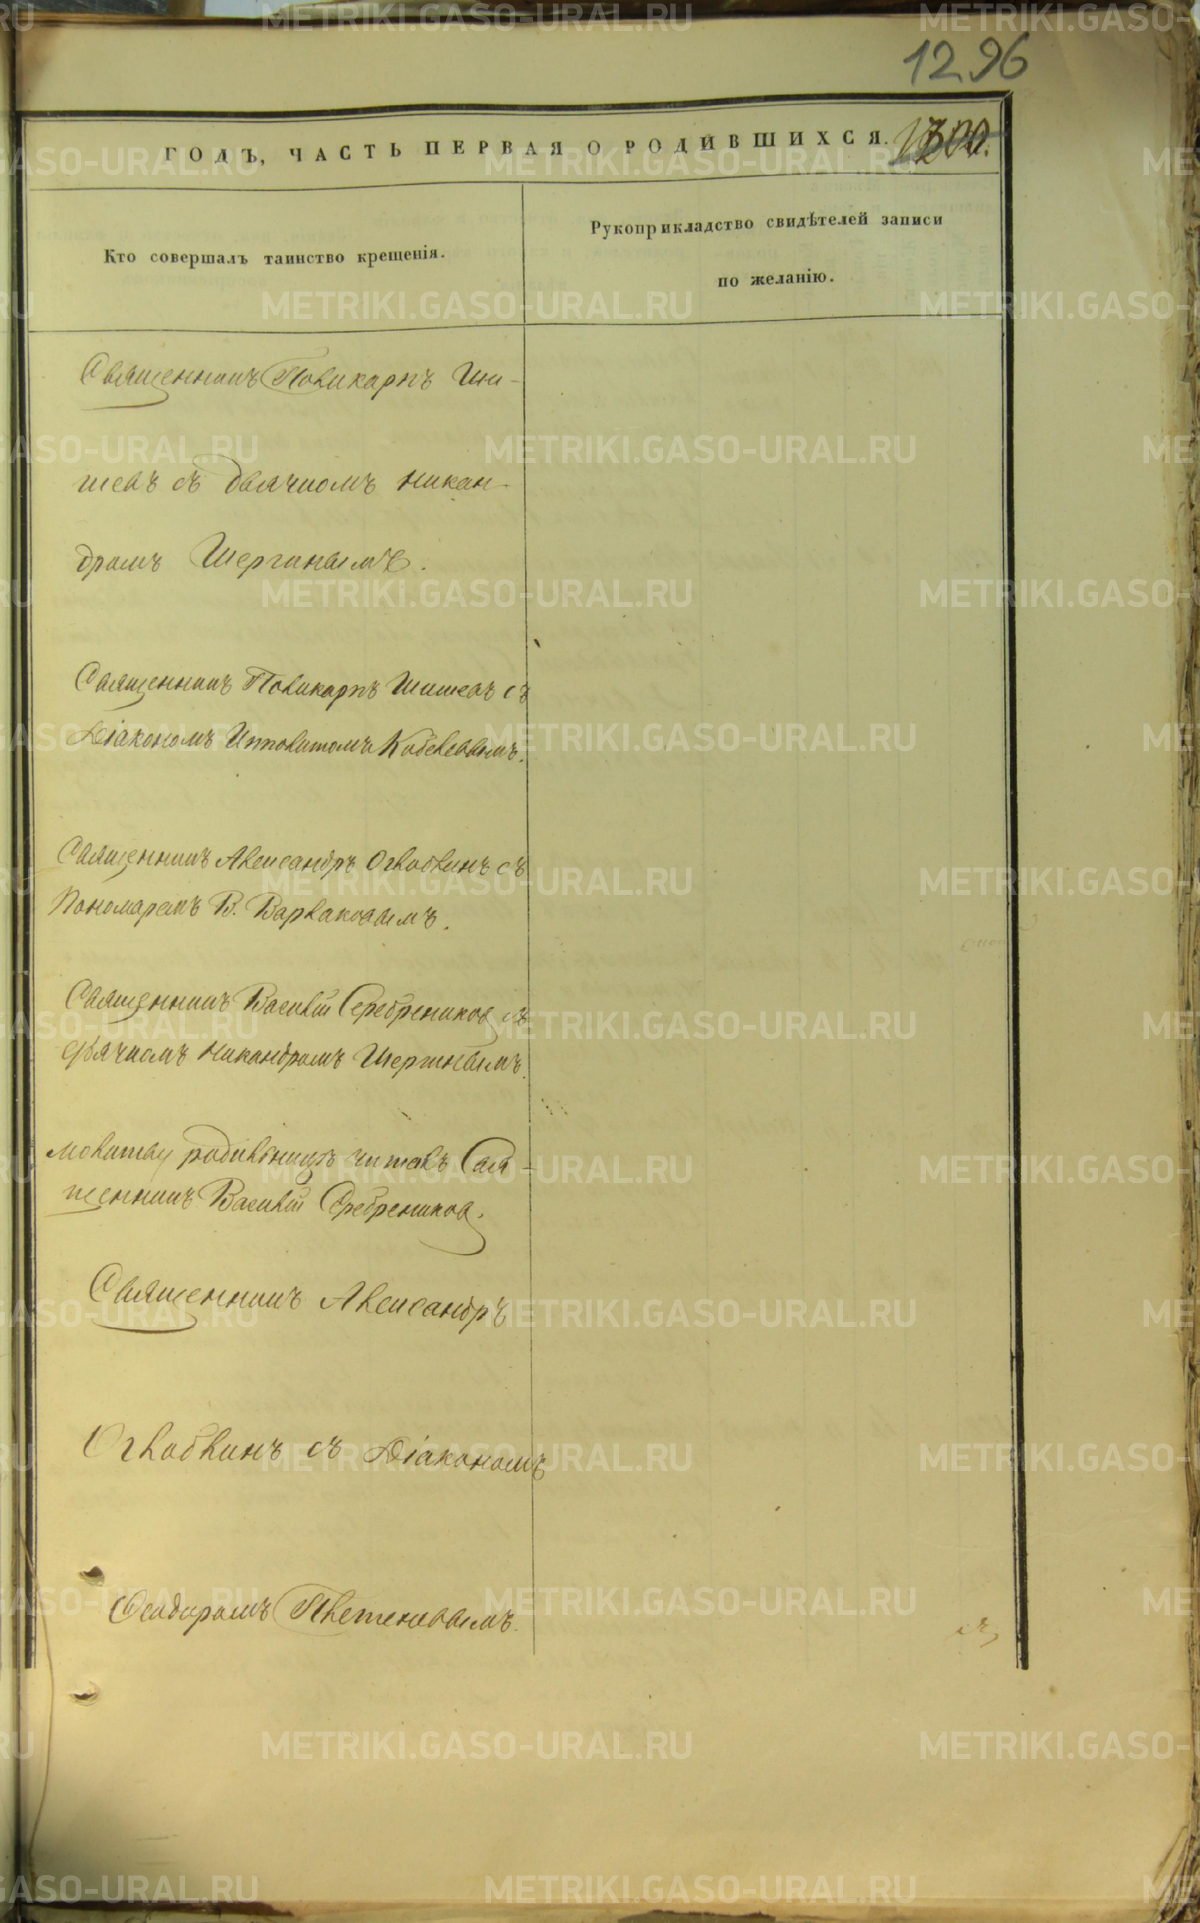 1296
ГОДЪ, ЧАСТЬ ПЕРВАЯ О РОДИВШИХСЯ. 1300.
Кто совершалъ таинство крещенія.
Рукоприкладство свидѣтелей записи
по желанію.
Священникъ Поликарпъ Ши-
шевъ съ дьячкомъ Никан-
дромъ Шергинымъ.
Священникъ Поликарпъ Шишевъ съ
Діакономъ Ипполитомъ Кобелевымъ.
Священникъ Александръ Оглоблинъ съ
Пономаремъ В. Варлаковымъ.
Священникъ Василій Серебрениковъ съ
дьячкомъ Никандромъ Шергинымъ.
Молитву родильницѣ читалъ Свя-
щенникъ Василій Серебрениковъ.
Священникъ Александръ
Оглоблинъ съ Діакономъ
Ѳеодоромъ Плетеневымъ.
METRIKI.GASO-URAL.RU